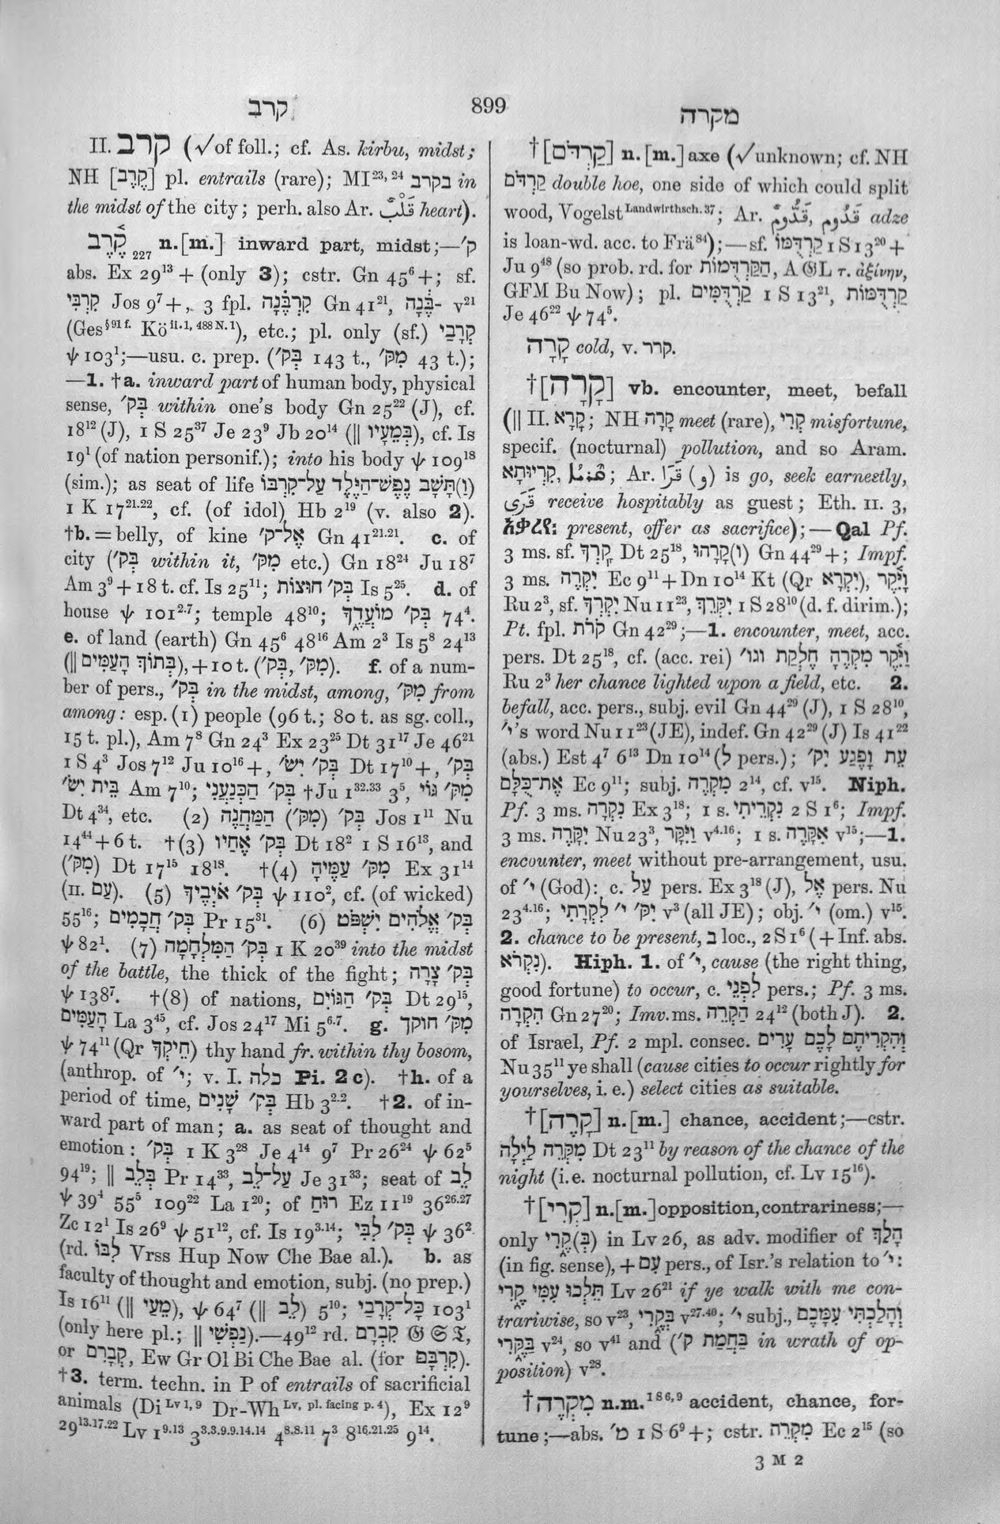 קרב
899
מקרה
II. קרב (√of foll.; cf. As. kirbu, midst;
NH [קֶרֶב] pl. entrails (rare); MI 23, 24 בקרב in
the midst of the city; perh. also Ar. قَلْبٌ heart).
קֶ֫רֶב 227 n.[m.] inward part, midst;—ק׳
abs. Ex 29 13 + (only 3); cstr. Gn 45 6 +; sf.
קִרְבִּי Jos 9 7 +, 3 fpl. קִרְבֶּ֫נָה Gn 41 21, ־בֶּ֫נָה v 21
(Ges § 91 f. Kö ii. 1, 488 N. 1), etc.; pl. only (sf.) קְרָבַי
ψ 103 1;—usu. c. prep. (בְּק׳ 143 t., מִקּ׳ 43 t.);
—1. †a. inward part of human body, physical
sense, בְּק׳ within one's body Gn 25 22 (J), cf.
18 12 (J), 1 S 25 37 Je 23 9 Jb 20 14 (|| בְּמֵעָיו), cf. Is
19 1 (of nation personif.); into his body ψ 109 18
(sim.); as seat of life וַ)תָּשָׁב נֶפֶשׁ־הַיֶּלֶד עַל־קִרְבּוֹ)
1 K 17 21.22, cf. (of idol) Hb 2 19 (v. also 2).
†b. = belly, of kine אֶל־ק׳ Gn 41 21.21. c. of
city (בְּק׳ within it, מִקּ׳ etc.) Gn 18 24 Ju 18 7
Am 3 9 + 18 t. cf. Is 25 11; בְּק׳ חוּצוֹת Is 5 25. d. of
house ψ 101 2.7; temple 48 10; בְּק׳ מוֹעֲדֶךָ 74 4.
e. of land (earth) Gn 45 6 48 16 Am 2 3 Is 5 8 24 13
(|| בְּתוֹךְ הָעַמִּים), + 10 t. (מִקּ׳, בְּק׳). f. of a num-
ber of pers., בְּק׳ in the midst, among, מִקּ׳ from
among: esp. (1) people (96 t.; 80 t. as sg. coll.,
15 t. pl.), Am 7 8 Gn 24 3 Ex 23 25 Dt 31 17 Je 46 21
1 S 4 3 Jos 7 12 Ju 10 16 +, בְּק׳ יִשׂ׳ Dt 17 10 +, בְּק׳
בֵּית יִשׂ׳ Am 7 10; בְּק׳ הַכְּנַעֲנִי †Ju 1 32.33 3 5, מִקּ׳ גּוֹי
Dt 4 34, etc. (2) בְּק׳ (מִקּ׳) הַמַּחֲנֶה Jos 1 11 Nu
14 44 + 6 t. †(3) בְּק׳ אֶחָיו Dt 18 2 1 S 16 13, and
(מִקּ׳) Dt 17 15 18 18. †(4) מִקּ׳ עַמֶּיהָ Ex 31 14
(II. עַם). (5) בְּק׳ אֹיְבֶיךָ ψ 110 2, cf. (of wicked)
55 16; בְּק׳ חֲכָמִים Pr 15 31. (6) בְּק׳ אֱלֹהִים יִשְׁפֹּט
ψ 82 1. (7) בְּק׳ הַמִּלְחָמָה 1 K 20 39 into the midst
of the battle, the thick of the fight; בְּק׳ צָרָה
ψ 138 7. †(8) of nations, בְּק׳ הַגּוֹיִם Dt 29 15,
הָעַמִּים La 3 45, cf. Jos 24 17 Mi 5 6.7. g. מִקּ׳ חוקך
ψ 74 11 (Qr חֵיקְךָ) thy hand fr. within thy bosom,
(anthrop. of י׳; v. I. כלה Pi. 2 c). †h. of a
period of time, בְּק׳ שָׁנִים Hb 3 2.2. †2. of in-
ward part of man; a. as seat of thought and
emotion: בְּק׳ 1 K 3 28 Je 4 14 9 7 Pr 26 24 ψ 62 5
94 19; || בְּלֵב Pr 14 33, עַל־לֵב Je 31 33; seat of לֵב
ψ 39 4 55 5 109 22 La 1 20; of רוּחַ Ez 11 19 36 26.27
Zc 12 1 Is 26 9 ψ 51 12, cf. Is 19 3.14; בְּק׳ לִבִּי ψ 36 2
(rd. לִבּוֹ Vrss Hup Now Che Bae al.). b. as
faculty of thought and emotion, subj. (no prep.)
Is 16 11 (|| מֵעַי), ψ 64 7 (|| לֵב) 5 10; כָּל־קְרָבַי 103 1
(only here pl.; || נַפְשִׁי).—49 12 rd. קִבְרָם 𝔊 𝔖 𝔗,
or קְבָרִם, Ew Gr Ol Bi Che Bae al. (for קִרְבָּם).
†3. term. techn. in P of entrails of sacrificial
animals (Di Lv 1, 9 Dr-Wh Lv, pl. facing p. 4), Ex 12 9
29 13.17.22 Lv 1 9.13 3 3.3.9.9.14.14 4 8.8.11 7 3 8 16.21.25 9 14.
†[קַרְדֹּם] n.[m.] axe (√unknown; cf. NH
קַרְדֹּם double hoe, one side of which could split
wood, Vogelst Landwirthsch. 37; Ar. قَدُومٌ, قَدُّومٌ adze
is loan-wd. acc. to Frä 84);—sf. קַרְדֻּמּוֹ 1 S 13 20 +
Ju 9 48 (so prob. rd. for הַקַּרְדֻּמּוֹת, A 𝔊L τ. ἀξίνην,
GFM Bu Now); pl. קַרְדֻּמִּים 1 S 13 21, קַרְדֻּמּוֹת
Je 46 22 ψ 74 5.
קָרָה cold, v. קרר.
†[קָרָה] vb. encounter, meet, befall
(|| II. קָרָא; NH קָרָה meet (rare), קֶרִי misfortune,
specif. (nocturnal) pollution, and so Aram.
קְרִיוּתָא, ; Ar. قَرَا (و) is go, seek earnestly,
قَرَى receive hospitably as guest; Eth. II. 3,
present, offer as sacrifice);—Qal Pf.
3 ms. sf. קָרְךָ Dt 25 18, וְ)קָרָהוּ) Gn 44 29 +; Impf.
3 ms. יִקְרֶה Ec 9 11 + Dn 10 14 Kt (Qr יִקְרָא), וַיִּ֫קֶר
Ru 2 3, sf. יִקְרְךָ Nu 11 23, יִקְּרֵךְ 1 S 28 10 (d. f. dirim.);
Pt. fpl. קֹרֹת Gn 42 29;—1. encounter, meet, acc.
pers. Dt 25 18, cf. (acc. rei) וַיִּ֫קֶר מִקְרֶהָ חֶלְקַת וגו׳
Ru 2 3 her chance lighted upon a field, etc. 2.
befall, acc. pers., subj. evil Gn 44 29 (J), 1 S 28 10,
י׳'s word Nu 11 23 (JE), indef. Gn 42 29 (J) Is 41 22
(abs.) Est 4 7 6 13 Dn 10 14 (לְ pers.); עֵת וָפֶגַע יִק׳
אֶת־כֻּלָּם Ec 9 11; subj. מִקְרֶה 2 14, cf. v 15. Niph.
Pf. 3 ms. נִקְרָה Ex 3 18; 1 s. נִקְרֵיתִי 2 S 1 6; Impf.
3 ms. יִקָּרֶה Nu 23 3, וַיִּקָּר v 4.16; 1 s. אִקָּרֶה v 15;—1.
encounter, meet without pre-arrangement, usu.
of י׳ (God): c. עַל pers. Ex 3 18 (J), אֶל pers. Nu
23 4.16; יִקּ׳ י׳ לִקְרָתִי v 3 (all JE); obj. י׳ (om.) v 15.
2. chance to be present, בְּ loc., 2 S 1 6 (+ Inf. abs.
נִקְרֹא). Hiph. 1. of י׳, cause (the right thing,
good fortune) to occur, c. לִפְנֵי pers.; Pf. 3 ms.
הִקְרָה Gn 27 20; Imv. ms. הַקְרֵה 24 12 (both J). 2.
of Israel, Pf. 2 mpl. consec. וְהִקְרִיתֶם לָכֶם עָרִים
Nu 35 11 ye shall (cause cities to occur rightly for
yourselves, i. e.) select cities as suitable.
†[קָרֶה] n.[m.] chance, accident;—cstr.
מִקְּרֵה לַיְלָה Dt 23 11 by reason of the chance of the
night (i.e. nocturnal pollution, cf. Lv 15 16).
†[קְרִי] n.[m.] opposition, contrariness;—
only בְּ)קֶרִי) in Lv 26, as adv. modifier of הָלַךְ
(in fig. sense), + עִם pers., of Isr.'s relation to י׳:
תֵּלְכוּ עִמִּי קֶרִי Lv 26 21 if ye walk with me con-
trariwise, so v 23, בְּקֶרִי v 27.40; י׳ subj., וְהָלַכְתִּי עִמָּכֶם
בְּקֶרִי v 24, so v 41 and (בַּחֲמַת ק׳ in wrath of op-
position) v 28.
†מִקְרֶה n.m. 1 S 6, 9 accident, chance, for-
tune;—abs. מ׳ 1 S 6 9 +; cstr. מִקְרֵה Ec 2 15 (so
3 M 2